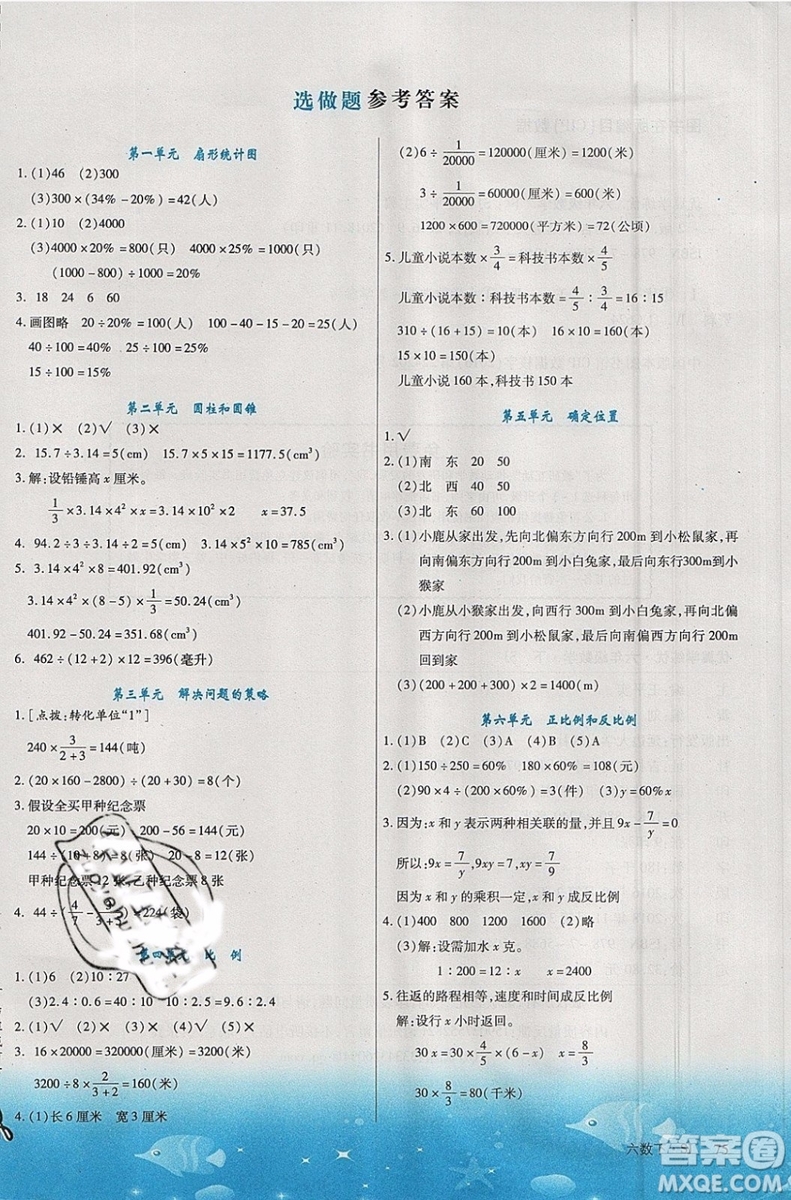 选做题 参考答案
第一单元 扇形统计图
1. (1)46 (2)300
(3)300×(34%-20%)=42(人)
2. (1)10 (2)4000
(3)4000×20%=800(只) 4000×25%=1000(只)
(1000-800)÷1000=20%
3. 18 24 6 60
4. 画图略 20÷20%=100(人) 100-40-15-20=25(人)
40÷100=40% 25÷100=25%
15÷100=15%
第二单元 圆柱和圆锥
1. (1)× (2)√ (3)×
2. 15.7÷3.14=5(cm) 15.7×5×15=1177.5(cm³)
3. 解:设铅锤高 x 厘米。
1/3×3.14×4²×x=3.14×10²×2 x=37.5
4. 94.2÷3÷3.14=10(cm) 3.14×5²×10=785(cm³)
5. 3.14×4²×8=401.92(cm³)
3.14×4²×(8-5)×1/3=50.24(cm³)
401.92-50.24=351.68(cm³)
6. 462÷(2+12)×12=396(毫升)
第三单元 解决问题的策略
1. [点拨:转化单位“1”]
240×3/(2+3)=144(吨)
2. (20×160-2800)÷(20+30)=8(个)
3. 假设全买甲种纪念票
20×10=200(元) 200-56=144(元)
144÷(10+8)=8(张) 20-8=12(张)
甲种纪念票12张,乙种纪念票8张
4. 44÷(4/7-3/(3+2))×=224(袋)
第四单元 比 例
1. (1)6 (2)10∶27
(3)2.4∶0.6=40%∶0.1 9.6∶2.4
2. (1)√ (2)√ (3)√ (4)√ (5)×
3. 16×20000=320000(厘米)=3200(米)
3200÷8×2/(3+2)=160(米)
4. (1)长6厘米 宽3厘米
(2)6÷1/20000=120000(厘米)=1200(米)
3÷1/20000=60000(厘米)=600(米)
1200×600=720000(平方米)=72(公顷)
5. 儿童小说本数×3/4=科技书本数×4/5
儿童小说本数∶科技书本数=4/5∶3/4=16∶15
310÷(16+15)=10(本) 16×10=160(本)
15×10=150(本)
儿童小说160本,科技书150本
第五单元 确定位置
1. √
2. (1)南 东 20 50
(2)北 西 40 50
(3)北 东 60 100
3. (1)小鹿从家出发,先向北偏东方向行200m到小松鼠家,再向偏南东方向行200m到小白兔家,向东行300m到小
猴家
(2)小鹿从小猴家出发,向西行300m到小白兔家,向北偏
西方向行200m到小松鼠家,最后向南偏西方向行200m
回到家
(3)(200+200+300)×2=1400(m)
第六单元 正比例和反比例
1. (1)B (2)C (3)A (4)A (5)B
2. (1)150÷250=60% 180×60%=108(元)
(2)90×4÷(200-200×60%)=3(件) (3)y=60%x
3. 因为:x 和 y 表示两种相关联的量,并且9x-7/y=0
所以:9x=7/y,9xy=7,xy=7/9
因为 x 和 y 的乘积一定,x 和 y 成反比例
4. (1)400 800 1600 (2)略
(3)解:设需加水 x 克。
1∶200=12∶x x=2400
5. 往返的路程相等,速度和时间成反比例
解:设行 x 小时返回。
30×x=30×4/5×(6-x) x=8/3
30×8/3=80(千米)
六数下
75
答案圈
MXQE.COM